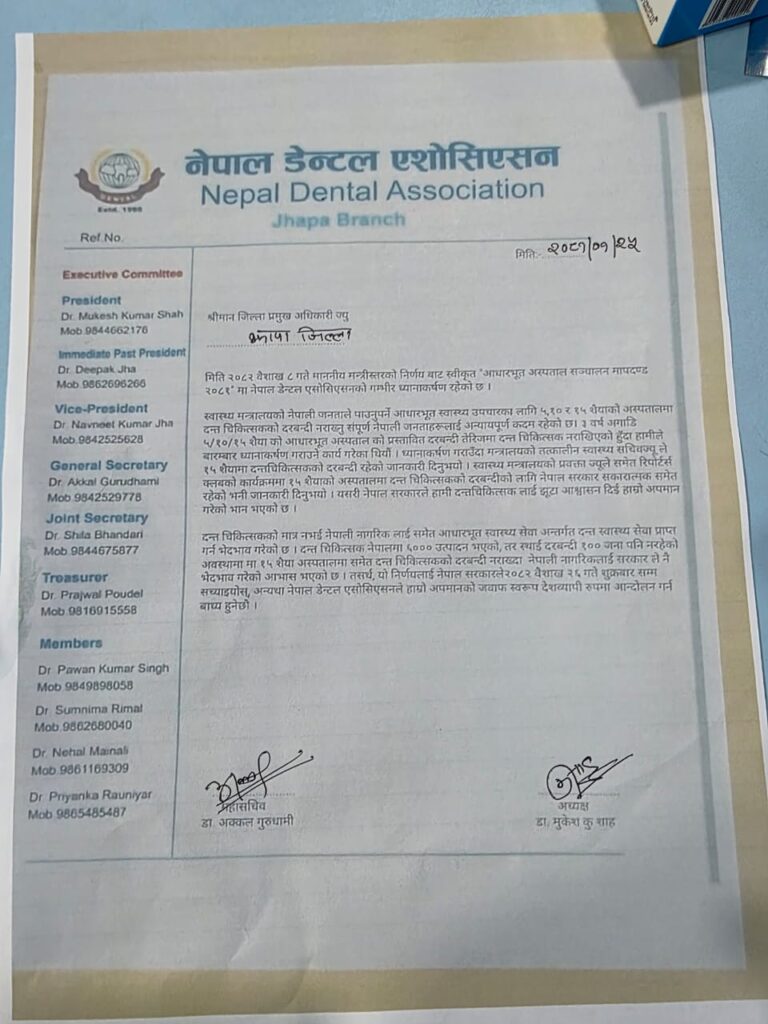 नेपाल डेन्टल एशोसिएसन
Nepal Dental Association
Jhapa Branch
DENTAL
Estd. 1990
Ref No.
मिति:- २०८१/०१/२५
Executive Committee
President
Dr. Mukesh Kumar Shah
Mob.9844662176
Immediate Past President
Dr. Deepak Jha
Mob.9862696266
Vice-President
Dr. Navneet Kumar Jha
Mob.9842525628
General Secretary
Dr. Akkal Gurudhami
Mob.9842529778
Joint Secretary
Dr. Shila Bhandari
Mob.9844675877
Treasurer
Dr. Prajwal Poudel
Mob.9816915558
Members
Dr Pawan Kumar Singh
Mob.9849898058
Dr. Sumnima Rimal
Mob.9862680040
Dr. Nehal Mainali
Mob.9861169309
Dr. Priyanka Rauniyar
Mob.9865485487
श्रीमान जिल्ला प्रमुख अधिकारी ज्यु
झापा जिल्ला
मिति २०८२ वैशाख ८ गते माननीय मन्त्रीस्तरको निर्णय बाट स्वीकृत "आधारभूत अस्पताल सञ्चालन मापदण्ड
२०८१" मा नेपाल डेन्टल एसोसिएसनको गम्भीर ध्यानाकर्षण रहेको छ ।
स्वास्थ्य मन्त्रालयको नेपाली जनताले पाउनुपर्ने आधारभूत स्वास्थ्य उपचारका लागि ५,१० र १५ शैयाको अस्पतालमा
दन्त चिकित्सकको दरबन्दी नराख्नु संपूर्ण नेपाली जनताहरूलाई अन्यायपूर्ण कदम रहेको छ। ३ वर्ष अगाडि
५/१०/१५ शैया को आधारभूत अस्पताल को प्रस्तावित दरबन्दी तेरिजमा दन्त चिकित्सक नराखिएको हुँदा हामीले
बारम्बार ध्यानाकर्षण गराउने कार्य गरेका थियौं । ध्यानाकर्षण गराउँदा मन्त्रालयको तत्कालीन स्वास्थ्य सचिवज्यू ले
१५ शैयामा दन्तचिकित्सकको दरबन्दी रहेको जानकारी दिनुभयो । स्वास्थ्य मन्त्रालयको प्रवक्ता ज्यूले समेत रिपोर्टर्स
क्लबको कार्यक्रममा १५ शैयाको अस्पतालमा दन्त चिकित्सकको दरबन्दीको लागि नेपाल सरकार सकारात्मक समेत
रहेको भनी जानकारी दिनुभयो । यसरी नेपाल सरकारले हामी दन्तचिकित्सक लाई झूटा आश्वासन दिई हाम्रो अपमान
गरेको भान भएको छ ।
दन्त चिकित्सकको मात्र नभई नेपाली नागरिक लाई समेत आधारभूत स्वास्थ्य सेवा अन्तर्गत दन्त स्वास्थ्य सेवा प्राप्त
गर्न भेदभाव गरेको छ । दन्त चिकित्सक नेपालमा ६००० उत्पादन भएको, तर स्थाई दरबन्दी १०० जना पनि नरहेको
अवस्थामा मा १५ शैया अस्पतालमा समेत दन्त चिकित्सकको दरबन्दी नराख्दा नेपाली नागरिकलाई सरकार ले नै
भेदभाव गरेको आभास भएको छ । तसर्थ, यो निर्णयलाई नेपाल सरकारले२०८२ वैशाख २६ गते शुक्रबार सम्म
सच्याइयोस्, अन्यथा नेपाल डेन्टल एसोसिएसनले हाम्रो अपमानको जवाफ स्वरूप देशव्यापी रुपमा आन्दोलन गर्न
बाध्य हुनेछौ ।
महासचिव
डा. अक्कल गुरुधामी
अध्यक्ष
डा. मुकेश कु शाह